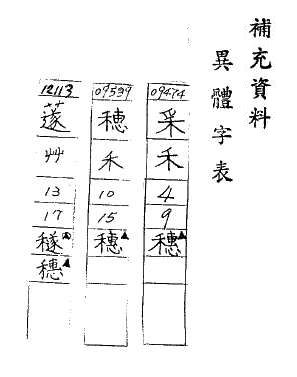 補充資料
異體字表
09474
禾
4
9
穗
09539
穗
禾
10
15
穗
12113
艸
13
17
穟
穗